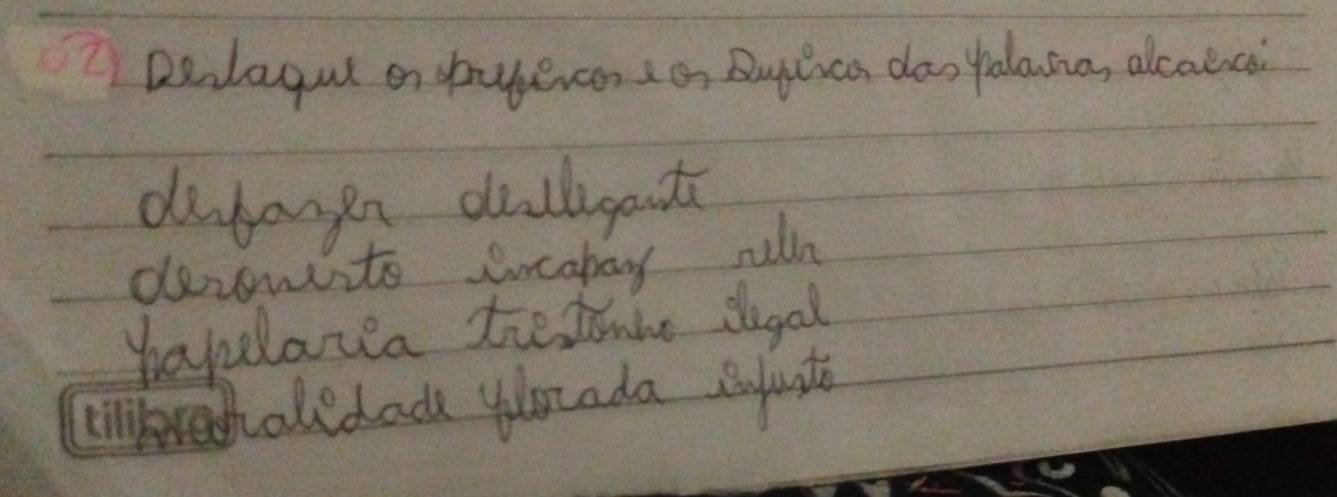 02) Destaque os prefixos e os sufixos das palavras abaixo:
desfazer deselegante
desonesto incapaz reler
papelaria tristonho ilegal
tilibra lealidade florada injusto